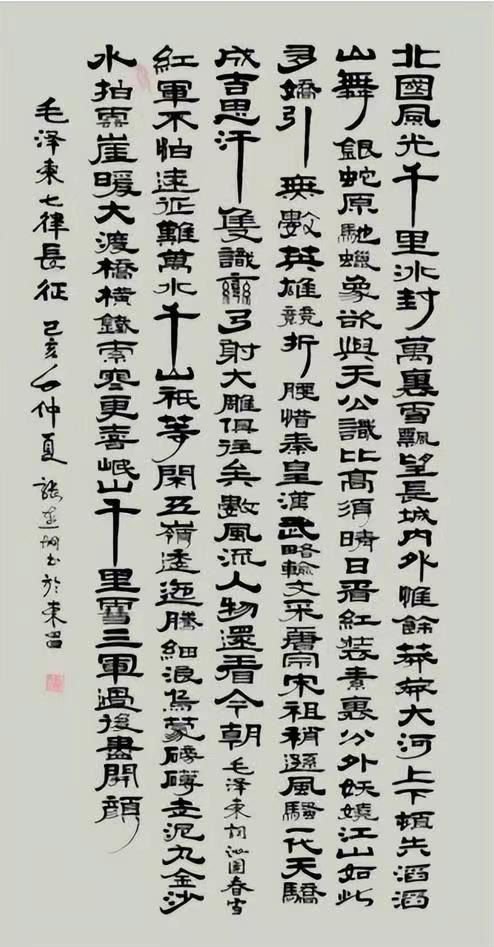 北國風光千里冰封萬裏雪飄望長城内外惟餘莽莽大河上下頓失滔滔
山舞銀蛇原馳蠟象欲與天公識比高須晴日看紅裝素裹分外妖嬈江山如此
多嬌引無數英雄競折腰惜秦皇漢武略輸文采唐宗宋祖稍遜風騷一代天驕
成吉思汗隻識彎弓射大雕俱往矣數風流人物還看今朝毛泽东詞沁园春雪
紅軍不怕遠征難萬水千山祇等閑五嶺逶迤騰細浪烏蒙磅礴走泥丸金沙
水拍雲崖暖大渡橋橫鐵索寒更喜岷山千里雪三軍過後盡開顔
毛泽东七律長征己亥年仲夏張书於東昌